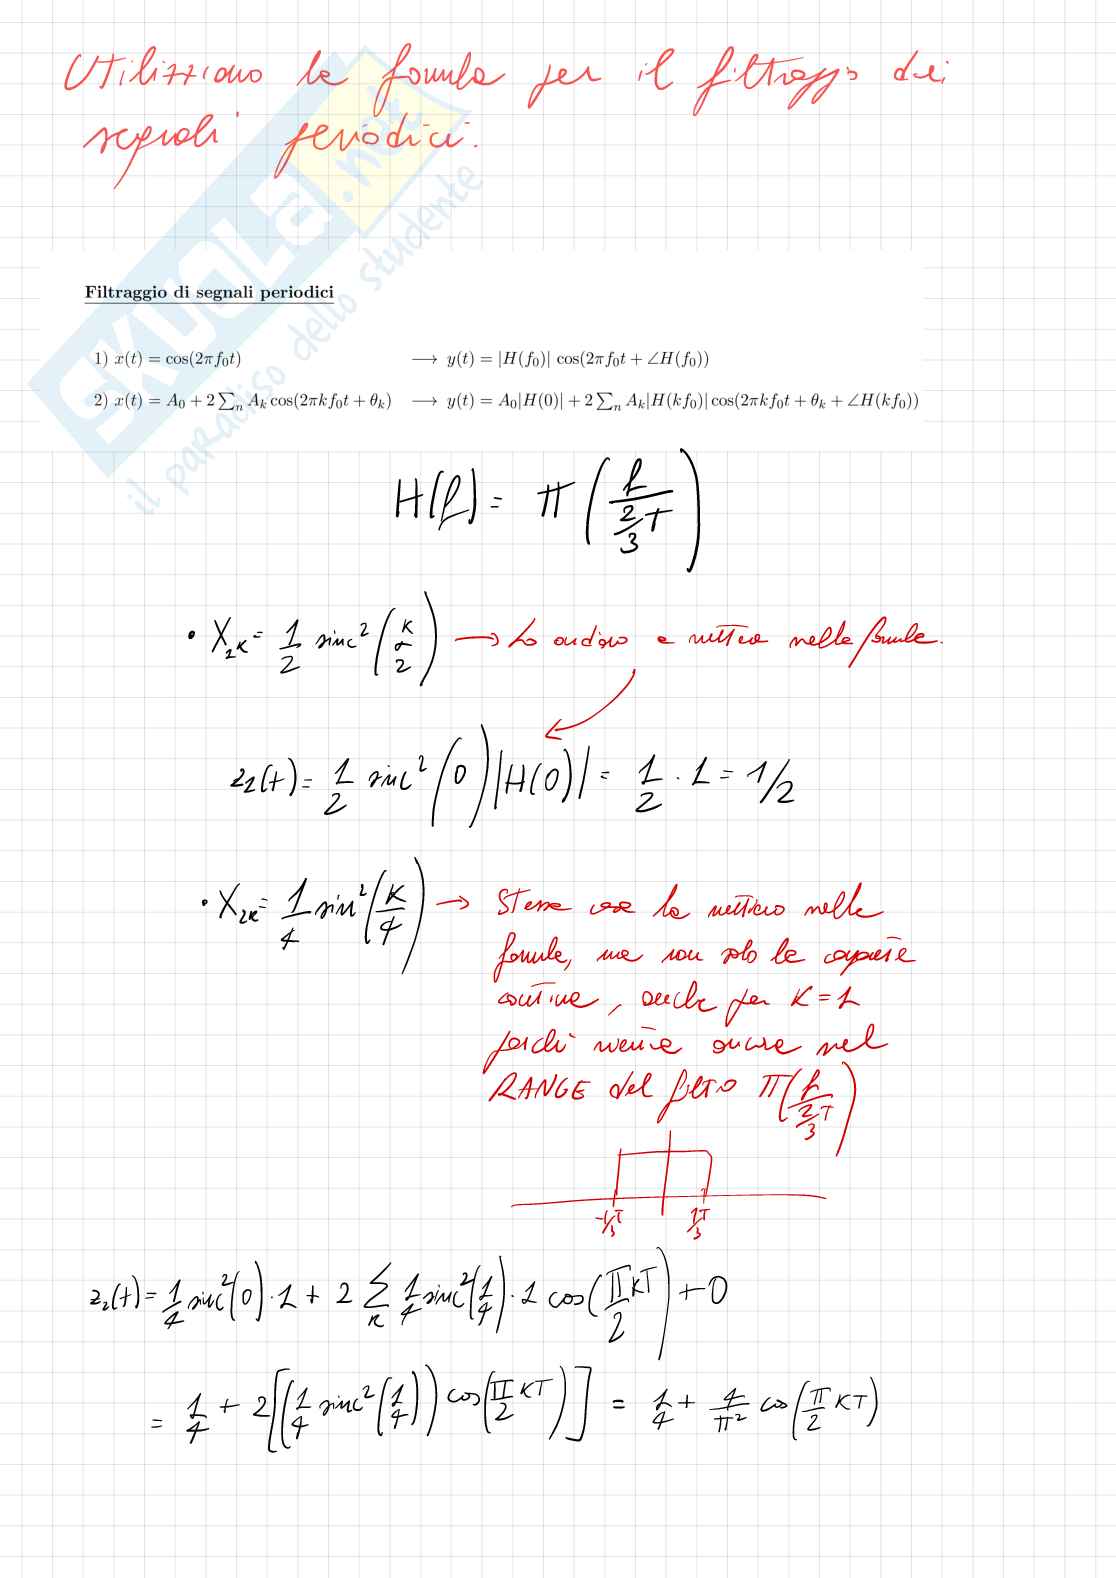 Utilizziamo la formula per il filtraggio dei
segnali periodici.
SKUOLA.net
il paradiso dello studente
Filtraggio di segnali periodici
1) x(t) = cos(2πf₀t) ⟶ y(t) = |H(f₀)| cos(2πf₀t + ∠H(f₀))
2) x(t) = A₀ + 2 ∑ₙ Aₖ cos(2πkf₀t + θₖ) ⟶ y(t) = A₀|H(0)| + 2 ∑ₙ Aₖ|H(kf₀)| cos(2πkf₀t + θₖ + ∠H(kf₀))
H(f) = π (f / (2/3 T))
• X₂ₖ = 1/2 sinc² (k/2) → Lo andiamo a mettere nella formula.
z₁(t) = 1/2 sinc² (0) |H(0)| = 1/2 · 1 = 1/2
• X₂ₖ = 1/4 sin² (k/4) → Stessa cosa la mettiamo nella
formula, ma non solo la
continua, anche per K = 1
perché ancora nel
RANGE del filtro π (f / (2/3 T))
-1/3 T 1/3 T
z₂(t) = 1/4 sinc² (0) · 1 + 2 ∑ₖ 1/4 sinc² (1/4) · 1 cos (π/2 KT) + 0
= 1/4 + 2 [(1/4 sinc² (1/4)) cos (π/2 KT)] = 1/4 + 4/π² cos (π/2 KT)